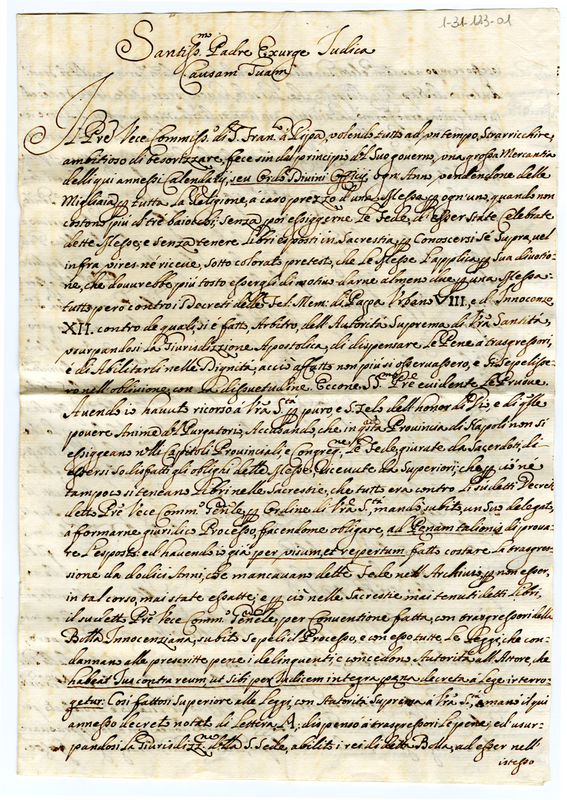 1-31-123-01
Santiss.mo Padre Exurge Iudica
Causam Tuam
Il Prê Vece Commiss.o di S. Fran.co à Ripa, volendo tutto ad un tempo, strarricchire,
ambitioso di tesorizzare, fece sin dal principio del Suo governo, una grossa Mercantia
delli qui annessi Calendarij, seu Ordo Divini Officij, ogn'Anno, vendendone delle
Migliaia tutta la Religione, à caro prezzo d'una Messa ogn'uno, quando non
costono più di tre baiocchi; senza poi essiggerne le Fede, d'esser state celebrate
dette Messe, e senza tenere libri esposti in Sacrestia conoscersi se supra, vel
infra vires ne riceve, sotto colorato pretesto, che le Messe l'applica Sua divotio=
ne, che douvrebbe più tosto essergli di motivo darne almeno due una Messa:
tutto però contro i Decreti delle Fel: Mem: di Papa Urbano VIII, e d'Innocenzo
XII. contro de quali, si è fatto Arbitro, dell'Autorità Suprema di Vrã Santità,
usurpandosi la Giurisdizzione Apostolica, di dispensare le Pene à trasgressori,
e di abilitarli nelle Dignità, acciò affatto non più si osservassero, e si sepelisse=
ro nell'oblivione, con la disuetudine. Eccone S.mo Prê evidente le Pruove.
Avendo io havuto ricorso à Vrã S.tà puro, e S. Zelo dell'honor di Dio, e di q.lle
povere Anime del Purgatorio, Accusando, che in q.sta Provincia di Napoli non si
essiggeano nelli Capitoli Provinciali, e Congreg.ne le Fede, giurate da Sacerdoti, di
essersi sodisfatti gli oblighi delle Messe, ricevute da Superiori; che ciò ne
tampoco si teneano libri nelle Sacrestie, che tutto era contro li sudetti Decreti
detto Prê Vece Comm.o Gen.le Ordine di Vrã S.tà, mandò subito un suo delegato,
à formarne giuridico Processo, facendome obligare, ad Penam talionis di prova=
re l'esposto: ed havendo io già per visum, et repertum fatto costare la trasgres=
sione da dodici Anni, che mancavano dette Fede nell'Archivio non esser,
in tal corso, mai state essatte; e ciò nelle Sacrestie mai tenuti detti libri,
il sudetto Prê Vece Comm.o Gen.le per Conventione fatta, con trasgressori della
Bolla Innocenziana, subito sepelì il Processo, e con esso tutte le Leggi, che con=
dannano alle prescritte pene i delinquenti; e concedono Autorità all'Attore, che
habeat Jus contra reum, ut sibi per Judicem integra pœna decreta à lege interro=
getur. Così fattosi Superiore alle Leggi, con Autorità Suprema à Vrã S.tà, emanò il qui
annesso decreto notato di lettera A, dispensò à trasgressori le pene, ed usur=
pandosi la Giurisdizz.ne della S. Sede, abilitò i rei di detta Bolla, ad esser nell'
istesso